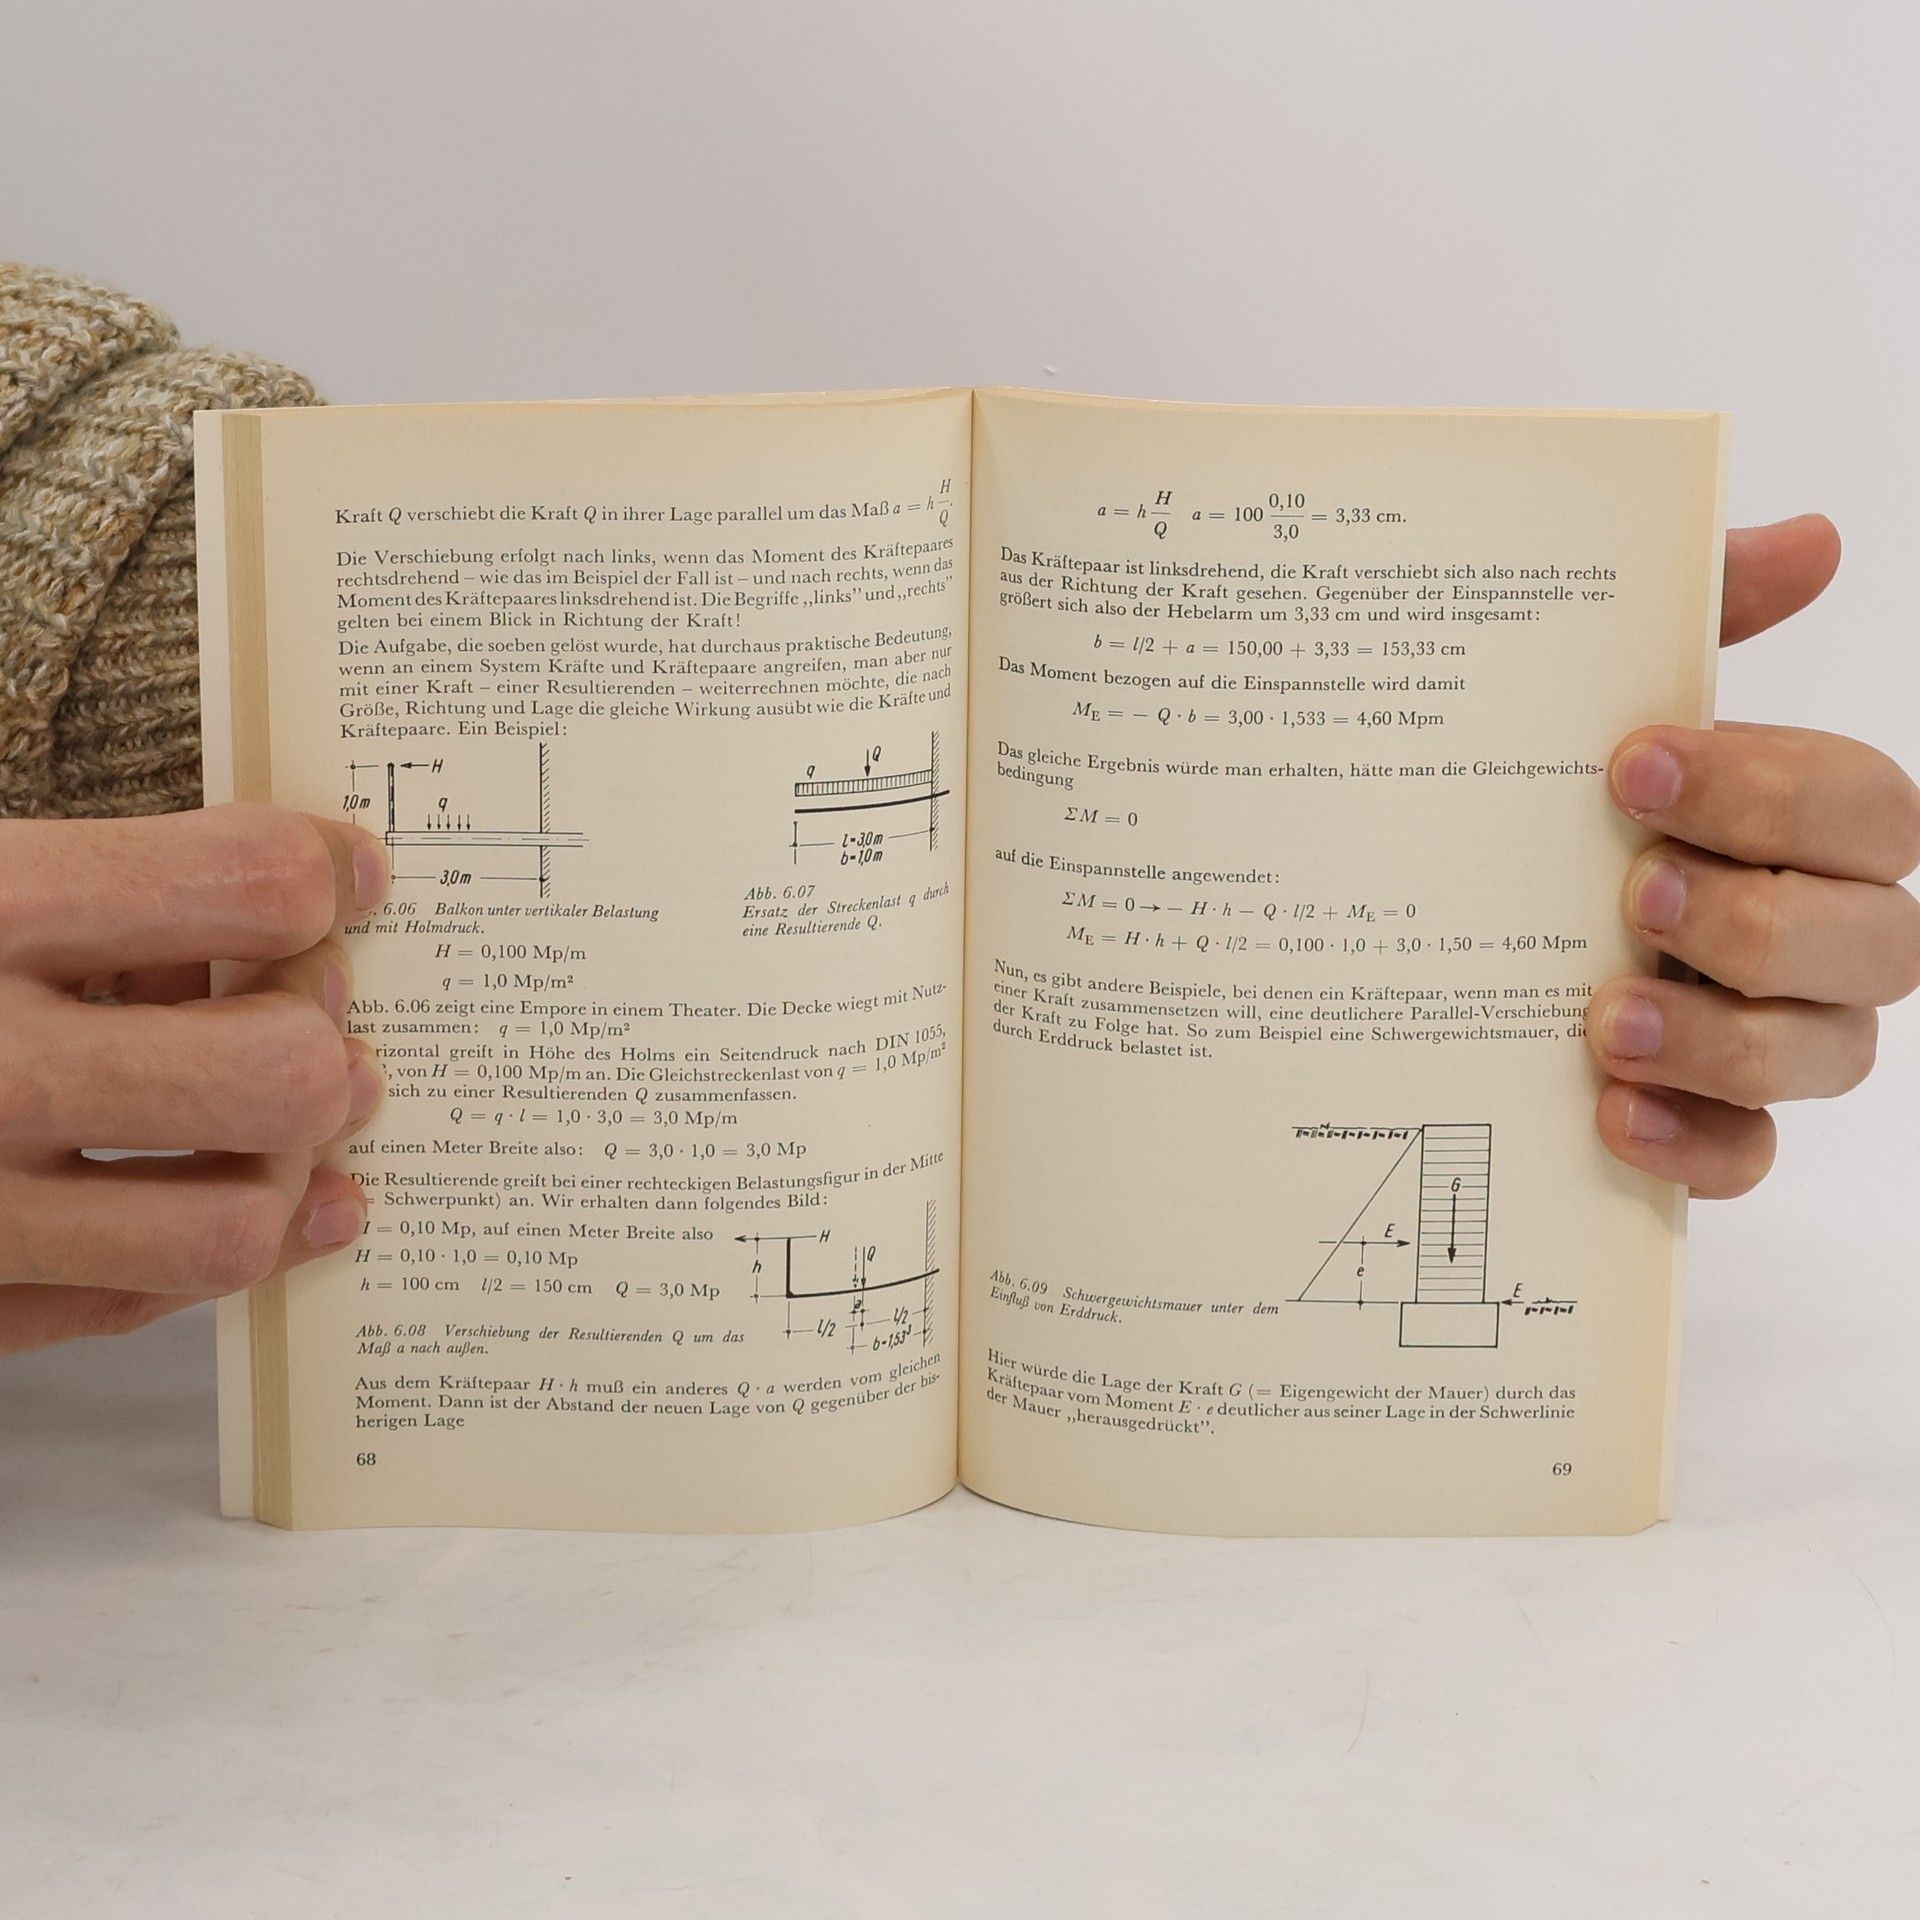 Kraft Q verschiebt die Kraft Q in ihrer Lage parallel um das Maß a = h H/Q.
Die Verschiebung erfolgt nach links, wenn das Moment des Kräftepaares
rechtsdrehend – wie das im Beispiel der Fall ist – und nach rechts, wenn das
Moment des Kräftepaares linksdrehend ist. Die Begriffe „links” und „rechts”
gelten bei einem Blick in Richtung der Kraft!
Die Aufgabe, die soeben gelöst wurde, hat durchaus praktische Bedeutung,
wenn an einem System Kräfte und Kräftepaare angreifen, man aber nur
mit einer Kraft – einer Resultierenden – weiterrechnen möchte, die nach
Größe, Richtung und Lage die gleiche Wirkung ausübt wie die Kräfte und
Kräftepaare. Ein Beispiel:
H
1,0 m
q
3,0 m
q
Q
l=3,0m
b=1,0m
6.06 Balkon unter vertikaler Belastung
und mit Holmdruck.
Abb. 6.07
Ersatz der Streckenlast q durch
eine Resultierende Q.
H = 0,100 Mp/m
q = 1,0 Mp/m²
Abb. 6.06 zeigt eine Empore in einem Theater. Die Decke wiegt mit Nutz-
last zusammen: q = 1,0 Mp/m²
rizontal greift in Höhe des Holms ein Seitendruck nach DIN 1055,
, von H = 0,100 Mp/m an. Die Gleichstreckenlast von q = 1,0 Mp/m²
sich zu einer Resultierenden Q zusammenfassen.
Q = q · l = 1,0 · 3,0 = 3,0 Mp/m
auf einen Meter Breite also: Q = 3,0 · 1,0 = 3,0 Mp
Die Resultierende greift bei einer rechteckigen Belastungsfigur in der Mitte
= Schwerpunkt) an. Wir erhalten dann folgendes Bild:
H = 0,10 Mp, auf einen Meter Breite also
H = 0,10 · 1,0 = 0,10 Mp
h = 100 cm l/2 = 150 cm Q = 3,0 Mp
H
h
Q
a
l/2
l/2
b=1,53³
Abb. 6.08 Verschiebung der Resultierenden Q um das
Maß a nach außen.
Aus dem Kräftepaar H · h muß ein anderes Q · a werden vom gleichen
Moment. Dann ist der Abstand der neuen Lage von Q gegenüber der bis-
herigen Lage
68
a = h H/Q a = 100 0,10/3,0 = 3,33 cm.
Das Kräftepaar ist linksdrehend, die Kraft verschiebt sich also nach rechts
aus der Richtung der Kraft gesehen. Gegenüber der Einspannstelle ver-
größert sich also der Hebelarm um 3,33 cm und wird insgesamt:
b = l/2 + a = 150,00 + 3,33 = 153,33 cm
Das Moment bezogen auf die Einspannstelle wird damit
M_E = – Q · b = 3,00 · 1,533 = 4,60 Mpm
Das gleiche Ergebnis würde man erhalten, hätte man die Gleichgewichts-
bedingung
ΣM = 0
auf die Einspannstelle angewendet:
ΣM = 0 → – H · h – Q · l/2 + M_E = 0
M_E = H · h + Q · l/2 = 0,100 · 1,0 + 3,0 · 1,50 = 4,60 Mpm
Nun, es gibt andere Beispiele, bei denen ein Kräftepaar, wenn man es mit
einer Kraft zusammensetzen will, eine deutlichere Parallel-Verschiebung
der Kraft zu Folge hat. So zum Beispiel eine Schwergewichtsmauer, die
durch Erddruck belastet ist.
G
E
e
E
Abb. 6.09 Schwergewichtsmauer unter dem
Einfluß von Erddruck.
Hier würde die Lage der Kraft G (= Eigengewicht der Mauer) durch das
Kräftepaar vom Moment E · e deutlicher aus seiner Lage in der Schwerlinie
der Mauer „herausgedrückt”.
69